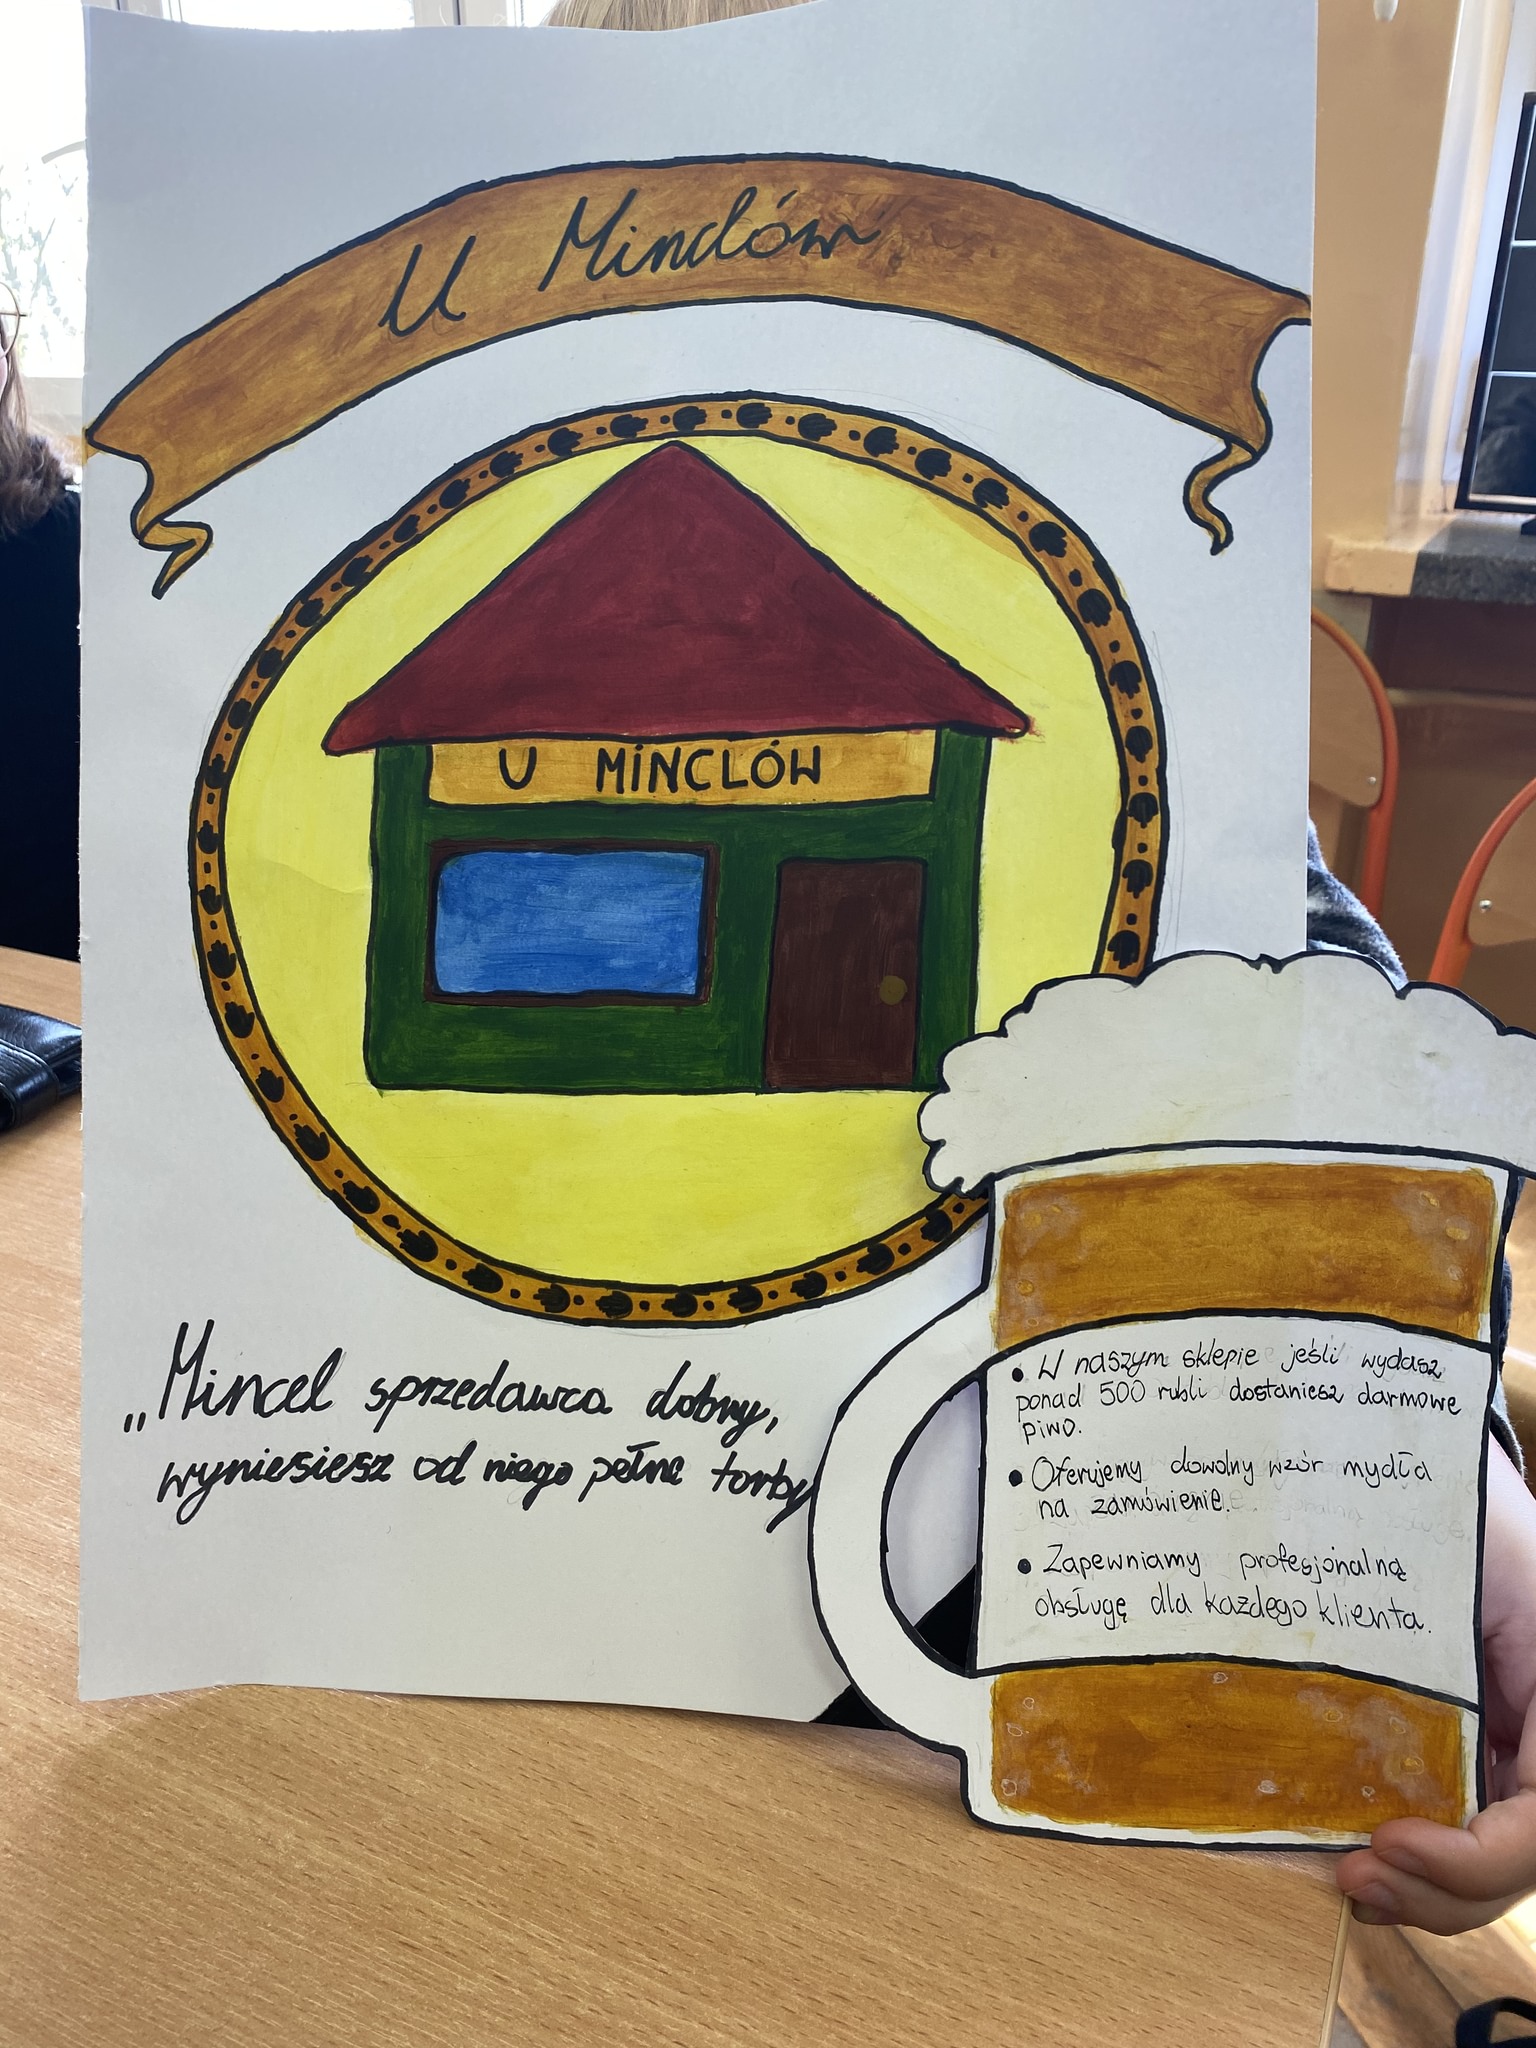 U Minclów
U MINCLÓW
„Mincel sprzedawca dobry,
wyniesiesz od niego pełne torby
• W naszym sklepie jeśli wydasz
ponad 500 rubli dostaniesz darmowe
piwo.
• Oferujemy dowolny wzór mydła
na zamówienie.
• Zapewniamy profesjonalną
obsługę dla każdego klienta.